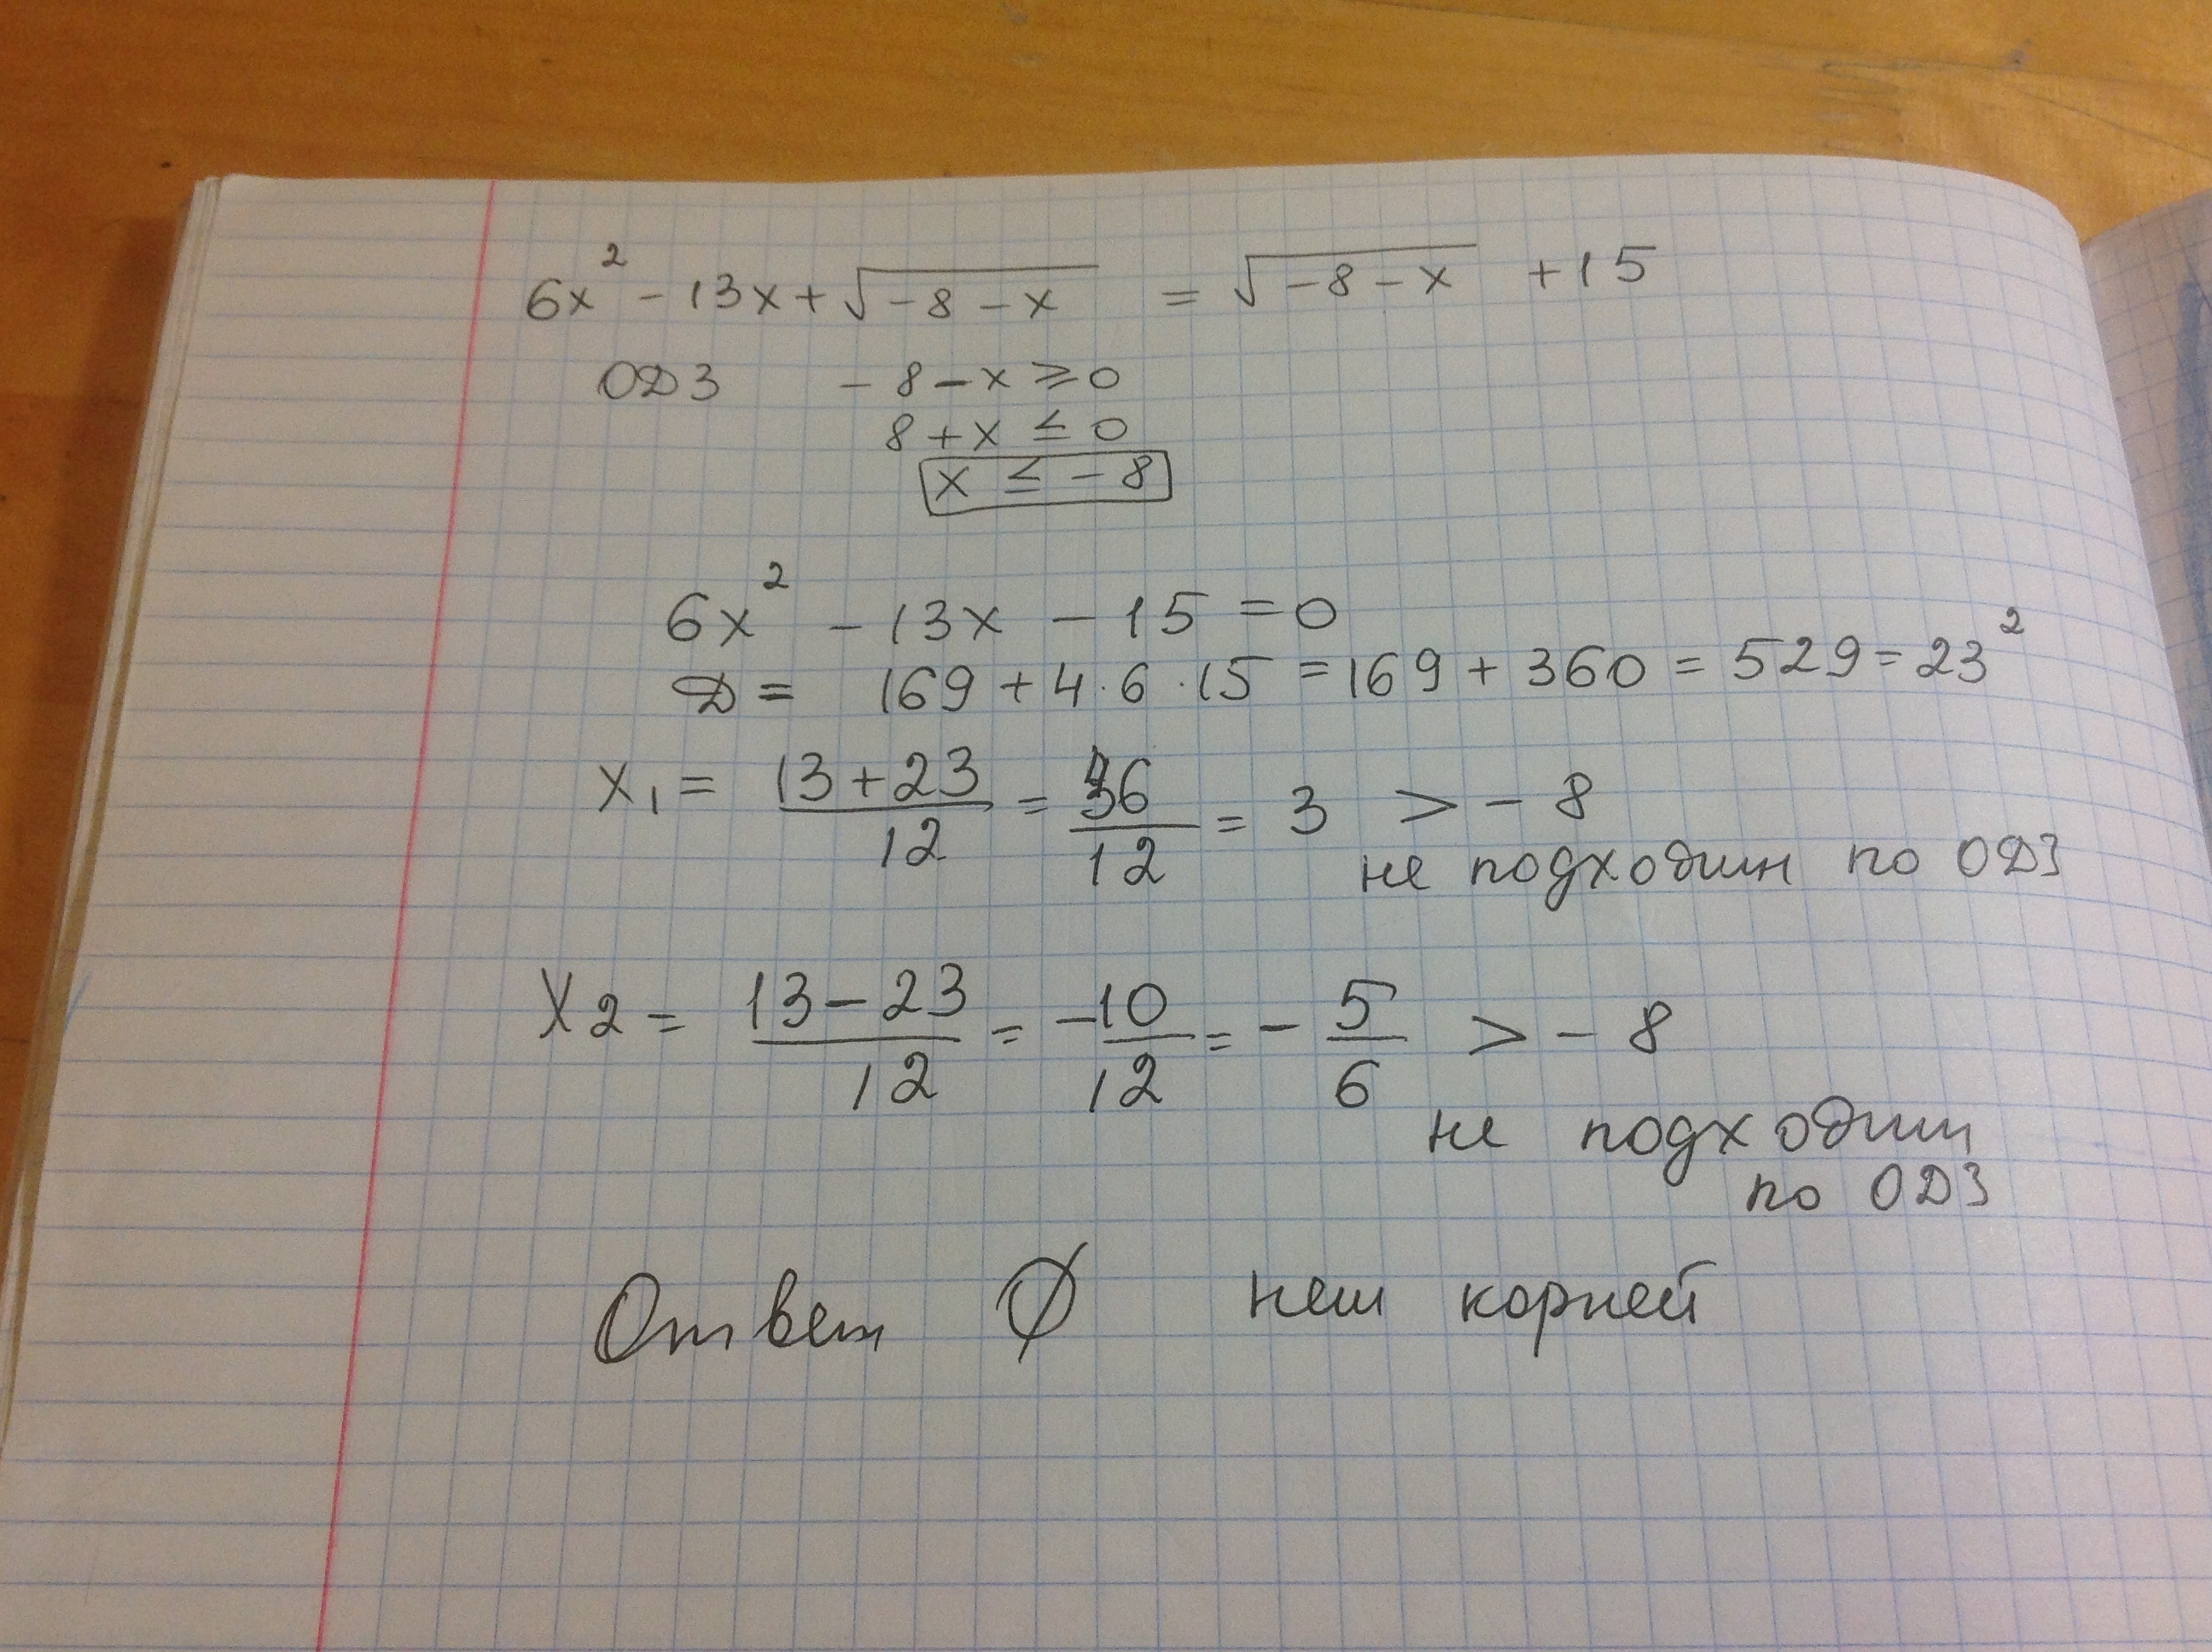 6x² - 13x + √(-8 - x) = √(-8 - x) + 15
ОДЗ -8 - x ≥ 0
8 + x ≤ 0
x ≤ -8
6x² - 13x - 15 = 0
Д = 169 + 4·6·15 = 169 + 360 = 529 = 23²
x₁ = (13 + 23)/12 = 36/12 = 3 > -8
не подходит по ОДЗ
x₂ = (13 - 23)/12 = -10/12 = -5/6 > -8
не подходит
по ОДЗ
Ответ ∅ нет корней